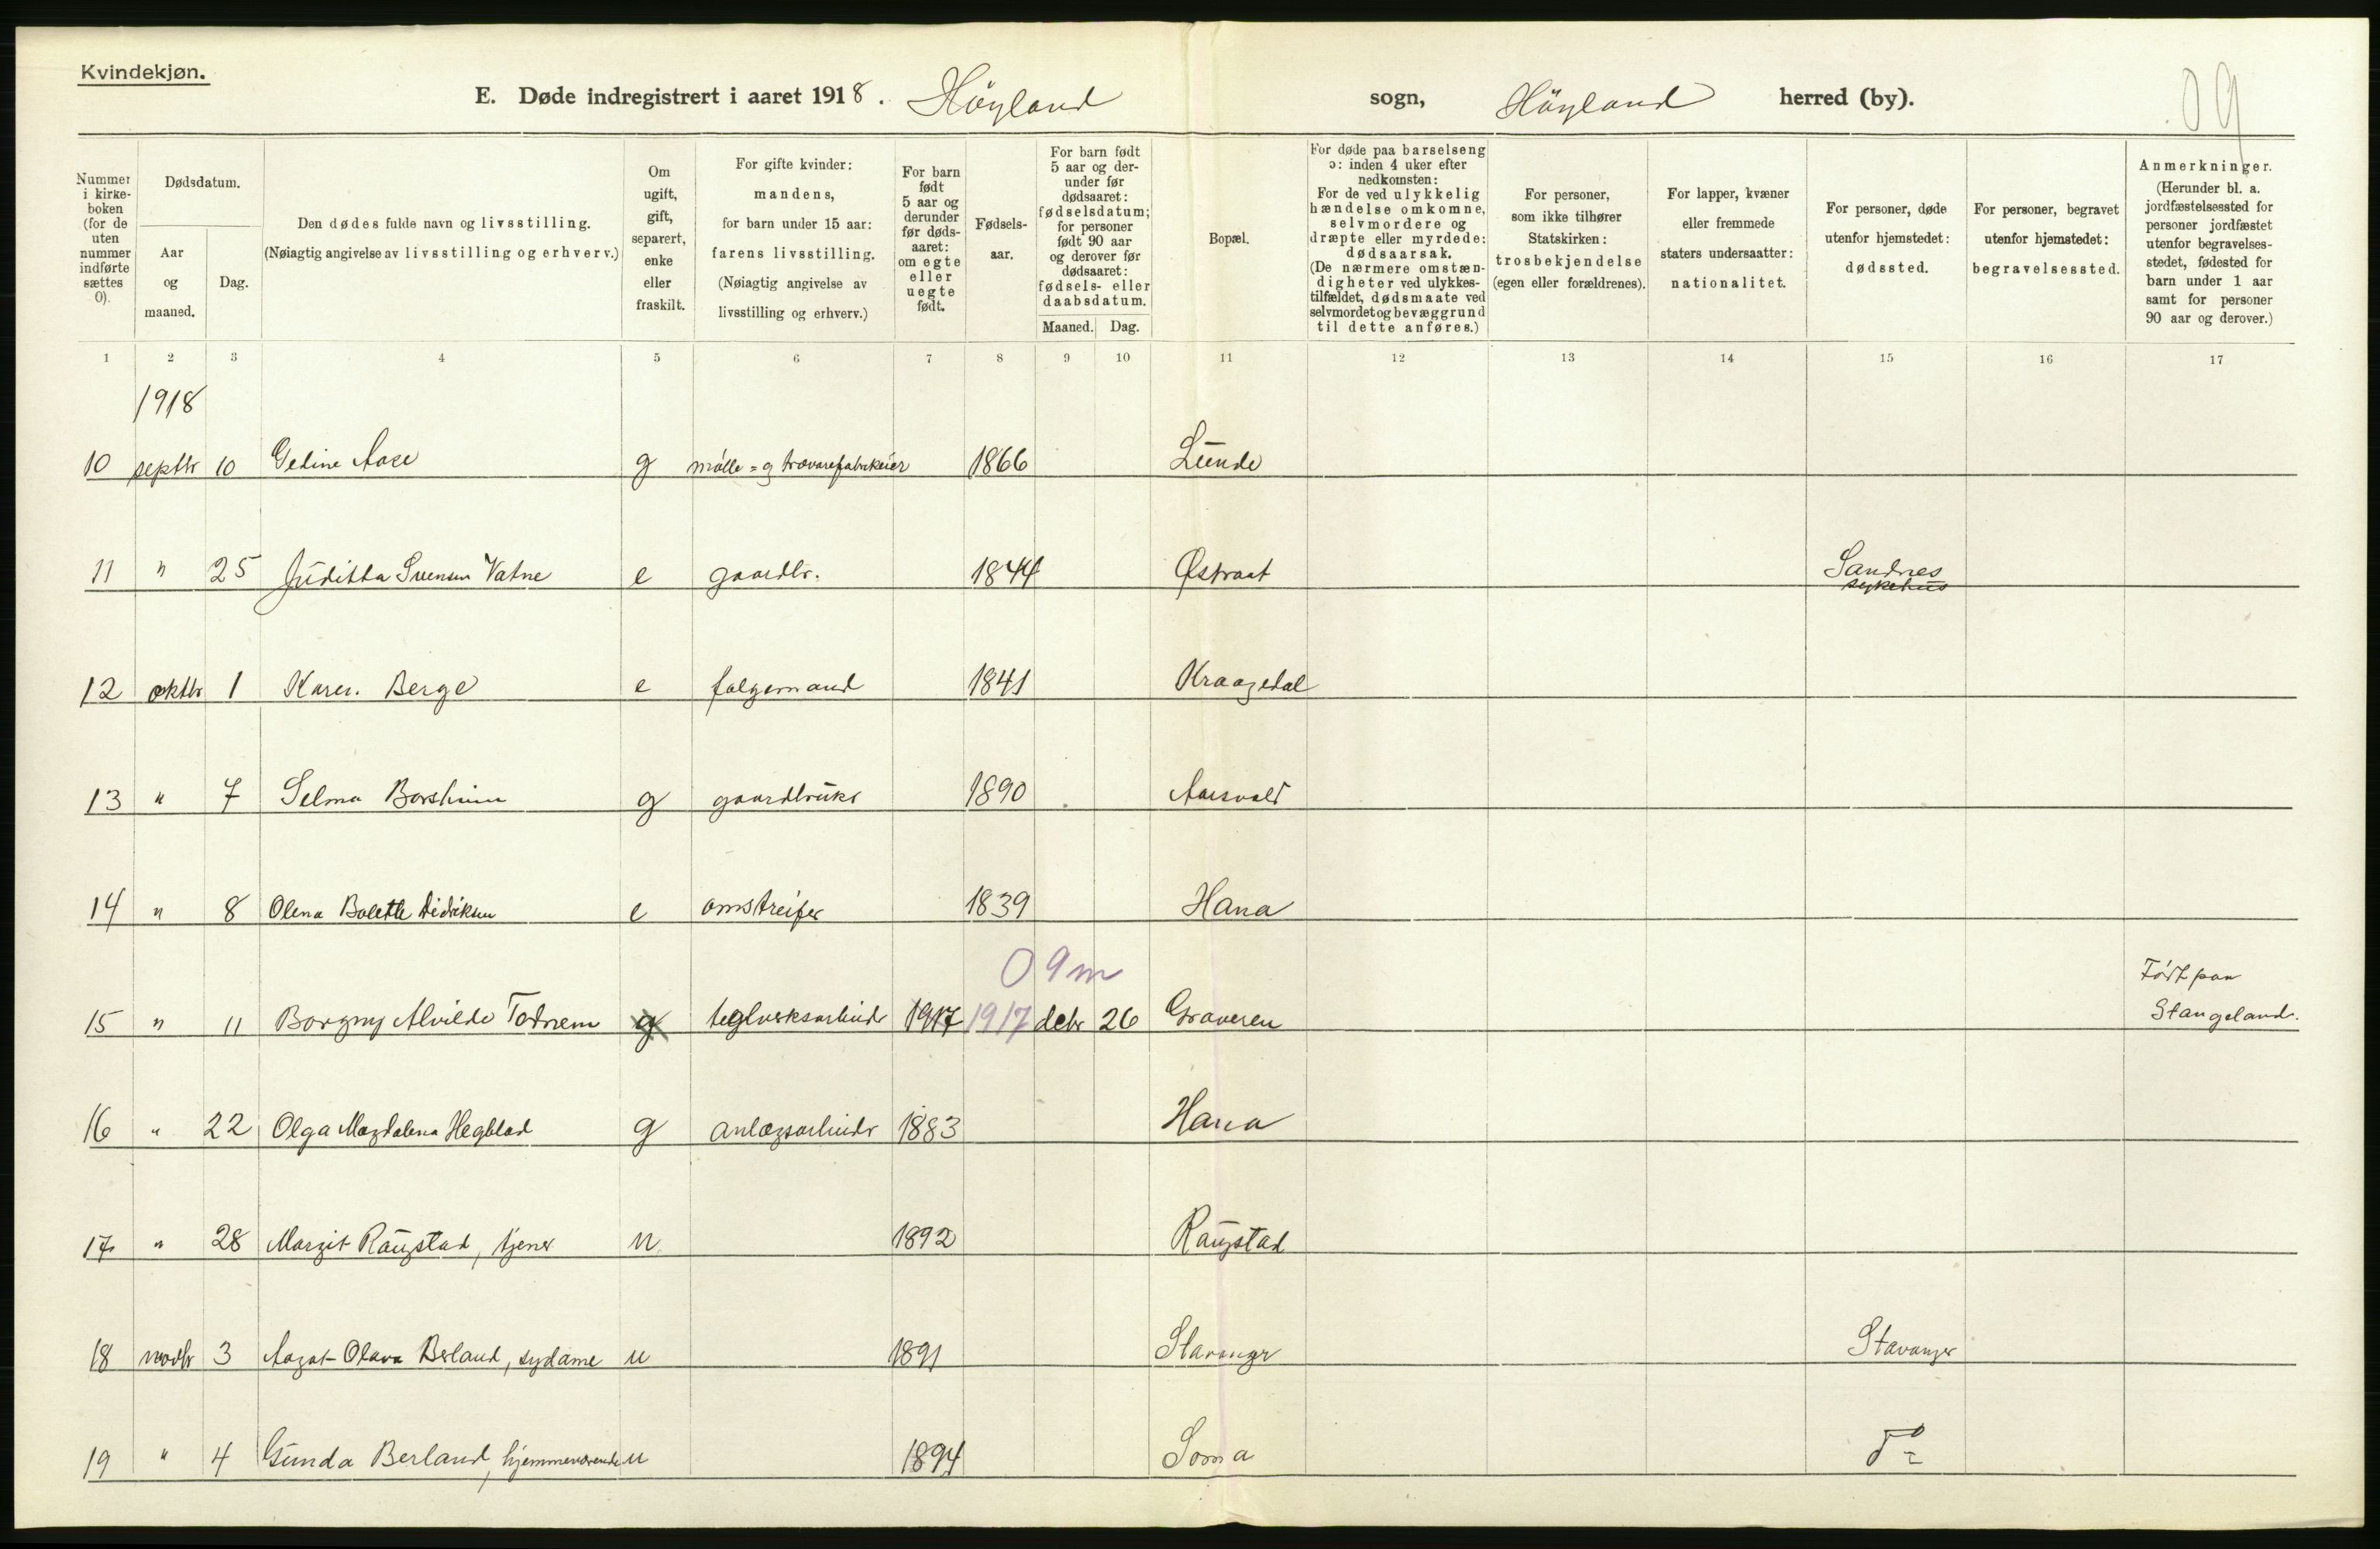 Kvindekjøn.
E. Døde indregistrert i aaret 1918. Höyland sogn, Höyland herred (by).
09
Nummer i kirke-boken (for de uten nummer indførte sættes 0).
Dødsdatum.
Aar og maaned.
Dag.
Den dødes fulde navn og livsstilling.
(Nøiagtig angivelse av livsstilling og erhverv.)
Om ugift, gift, separert, enke eller fraskilt.
For gifte kvinder: mandens, for barn under 15 aar: farens livsstilling. (Nøiagtig angivelse av livsstilling og erhverv.)
For barn født 5 aar og derunder før døds-aaret: om egte eller uegte født.
Fødsels-aar.
For barn født 5 aar og der-under før dødsaaret: fødselsdatum; for personer født 90 aar og derover før dødsaaret: fødsels- eller daabsdatum.
Maaned. Dag.
Bopæl.
For døde paa barselseng ɔ: inden 4 uker efter nedkomsten: For de ved ulykkelig hændelse omkomne, selvmordere og dræpte eller myrdede: dødsaarsak. (De nærmere omstæn-digheter ved ulykkes-tilfældet, dødsmaate ved selvmordet og bevæggrund til dette anføres.)
For personer, som ikke tilhører Statskirken: trosbekjendelse (egen eller forældrenes).
For lapper, kvæner eller fremmede staters undersaatter: nationalitet.
For personer, døde utenfor hjemstedet: dødssted.
For personer, begravet utenfor hjemstedet: begravelsessted.
Anmerkninger. (Herunder bl. a. jordfæstelsessted for personer jordfæstet utenfor begravelses-stedet, fødested for barn under 1 aar samt for personer 90 aar og derover.)
1 2 3 4 5 6 7 8 9 10 11 12 13 14 15 16 17
1918
10 septbr 10 Geline Aase g mölle= g trævarefabrikeier 1866 Lunde
11 " 25 Juditta Svensen Vatne e gaardbr. 1844 Østraat Sandnes
sykehus
12 oktbr 1 Karen Berge e folgemand 1841 Kraagedal
13 " 7 Selma Borsheim g gaardbruks 1890 Aarsvold
14 " 8 Olena Bolette Didriksen e omstreifer 1839 Hana
09m
Född paa
15 " 11 Borgny Alvilde Todnem g teglverksarbeider 1917 1917 debr 26 Graveren Stangeland.
16 " 22 Olga Magdalena Hegblad g anlægsarbeider 1883 Hana
17 " 28 Margit Raugstad, tjener u 1892 Raugstad
18 novbr 3 Aagot Olava Berland, sydame u 1891 Stavanger Stavanger
19 " 4 Gunda Berland, hjemmeværende u 1894 Soma do